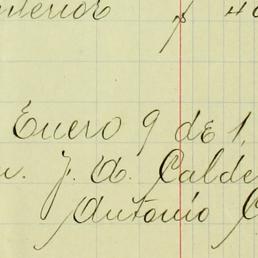 nterior $ 40
Enero 9 de 1.
n. J. A. Calde
Antonio C